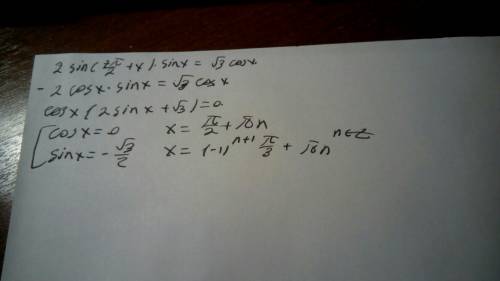 2 sin(7π/2 + x) · sin x = √3 cos x
- 2 cos x · sin x = √3 cos x
cos x (2 sin x + √3) = 0
[ cos x = 0    x = π/2 + πn
[ sin x = - √3/2    x = (-1)^(n+1) π/3 + πn    n∈Z